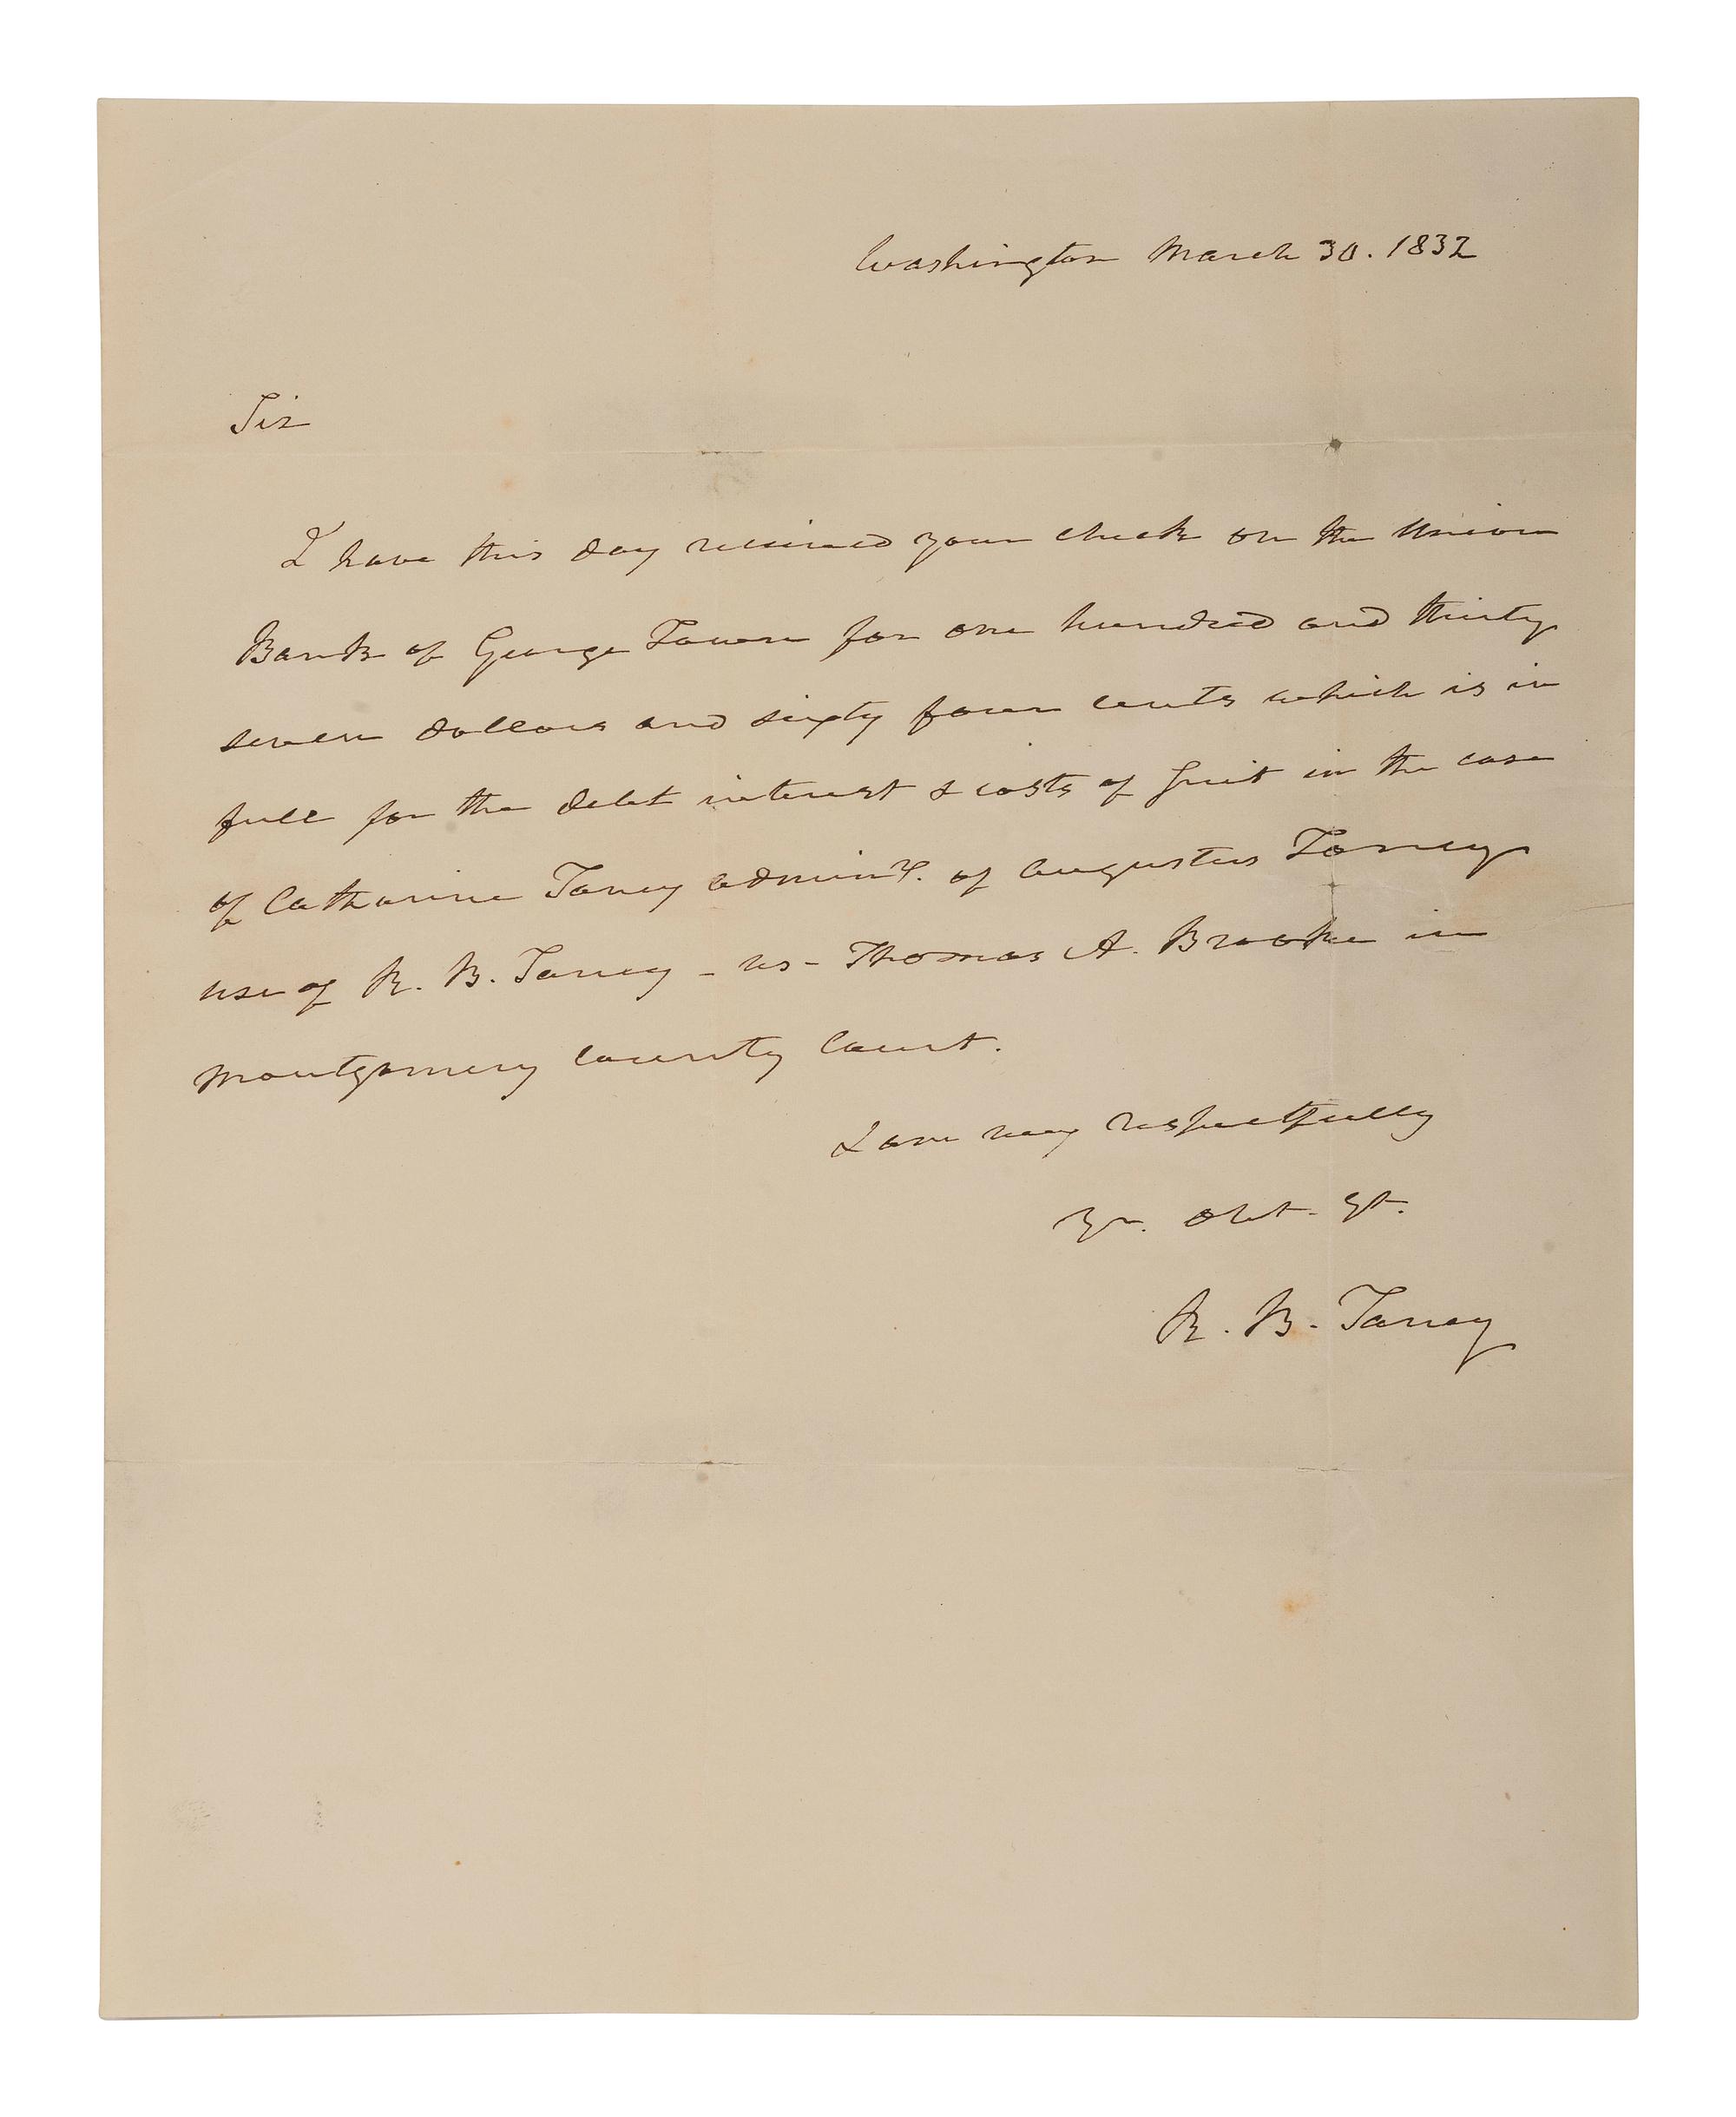 Washington March 30. 1832
Sir
I have this day received your check on the Union
Bank of George Town for one hundred and thirty
seven dollars and sixty four cents which is in
full for the debt interest & costs of suit in the case
of Catharine Taney adminx. of Augustus Taney
use of R. B. Taney - vs - Thomas A. Brooke in
Montgomery County Court.
I am very respectfully
Yr. obt. St.
R. B. Taney